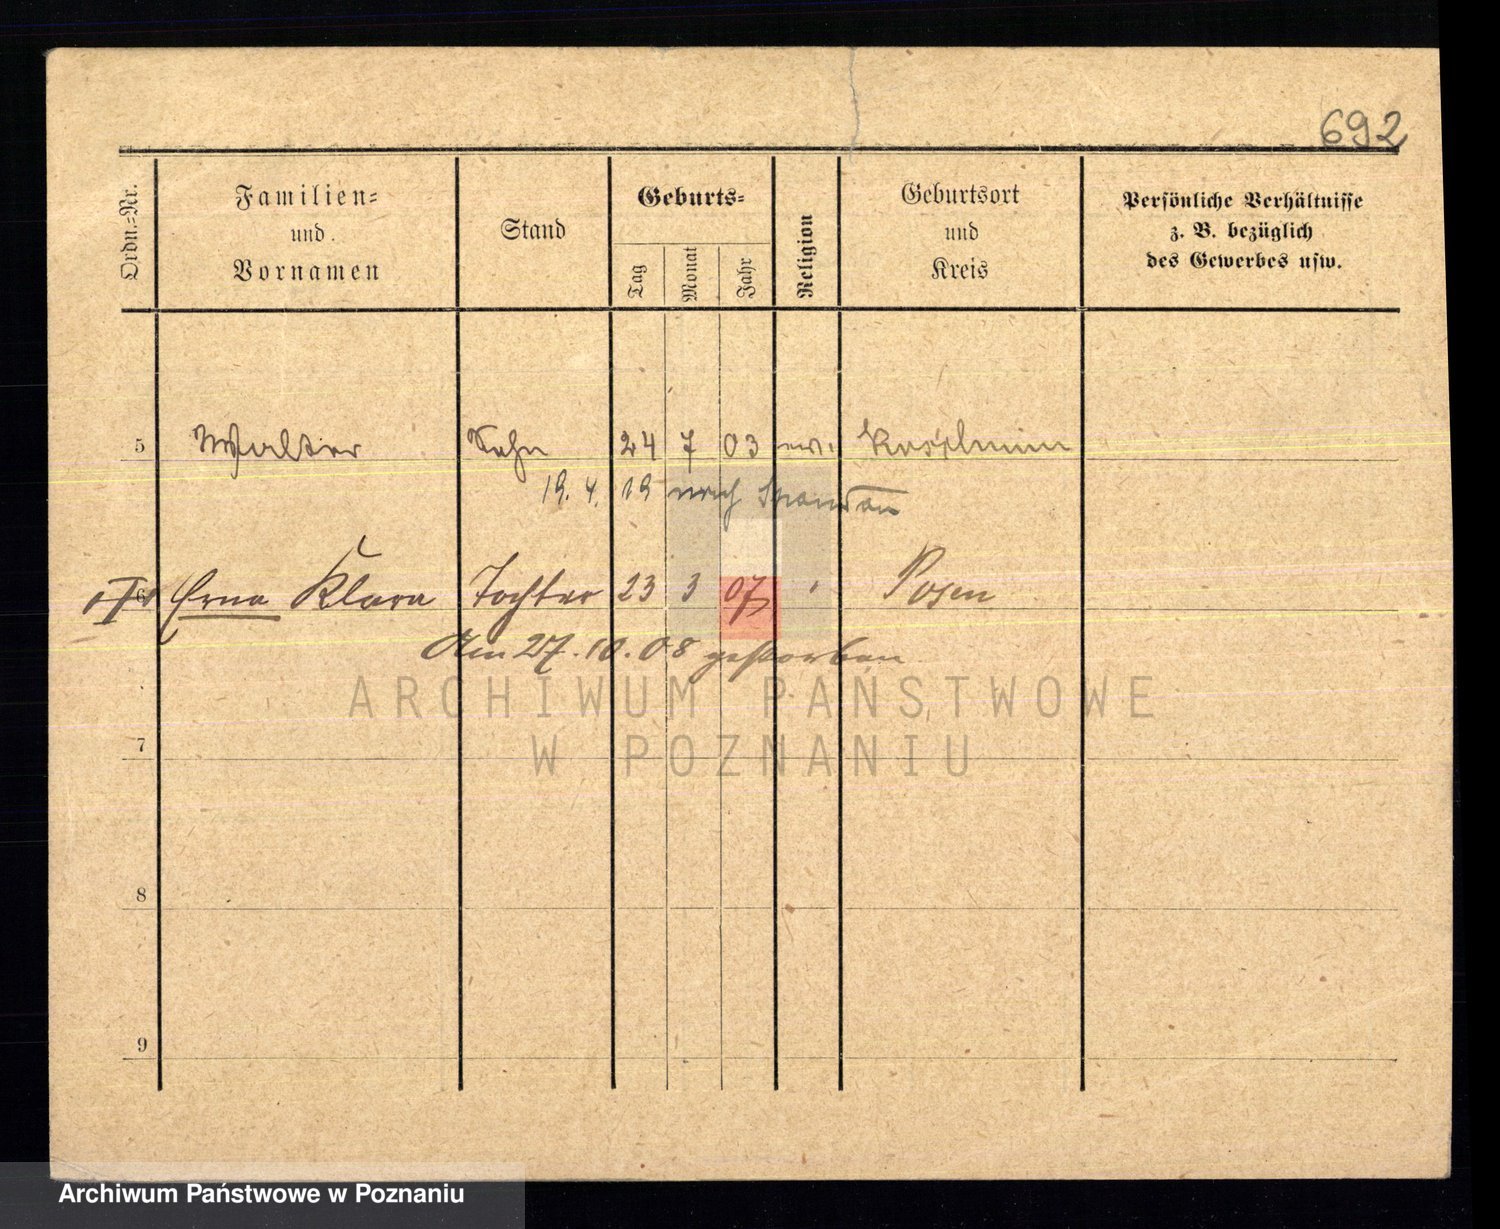 692
Ordn.-Nr.
Familien-
und
Vornamen
Stand
Geburts-
Tag
Monat
Jahr
Religion
Geburtsort
und
Kreis
Persönliche Verhältnisse
z. B. bezüglich
des Gewerbes usw.
5 Walter Sohn 24 7 03 ev.
19. 4. 19 nach Spandau
6 Erna Klara Tochter 23 3 07 " Posen
Am 27.10.08 gestorben
ARCHIWUM PAŃSTWOWE
W POZNANIU
7
8
9
Archiwum Państwowe w Poznaniu